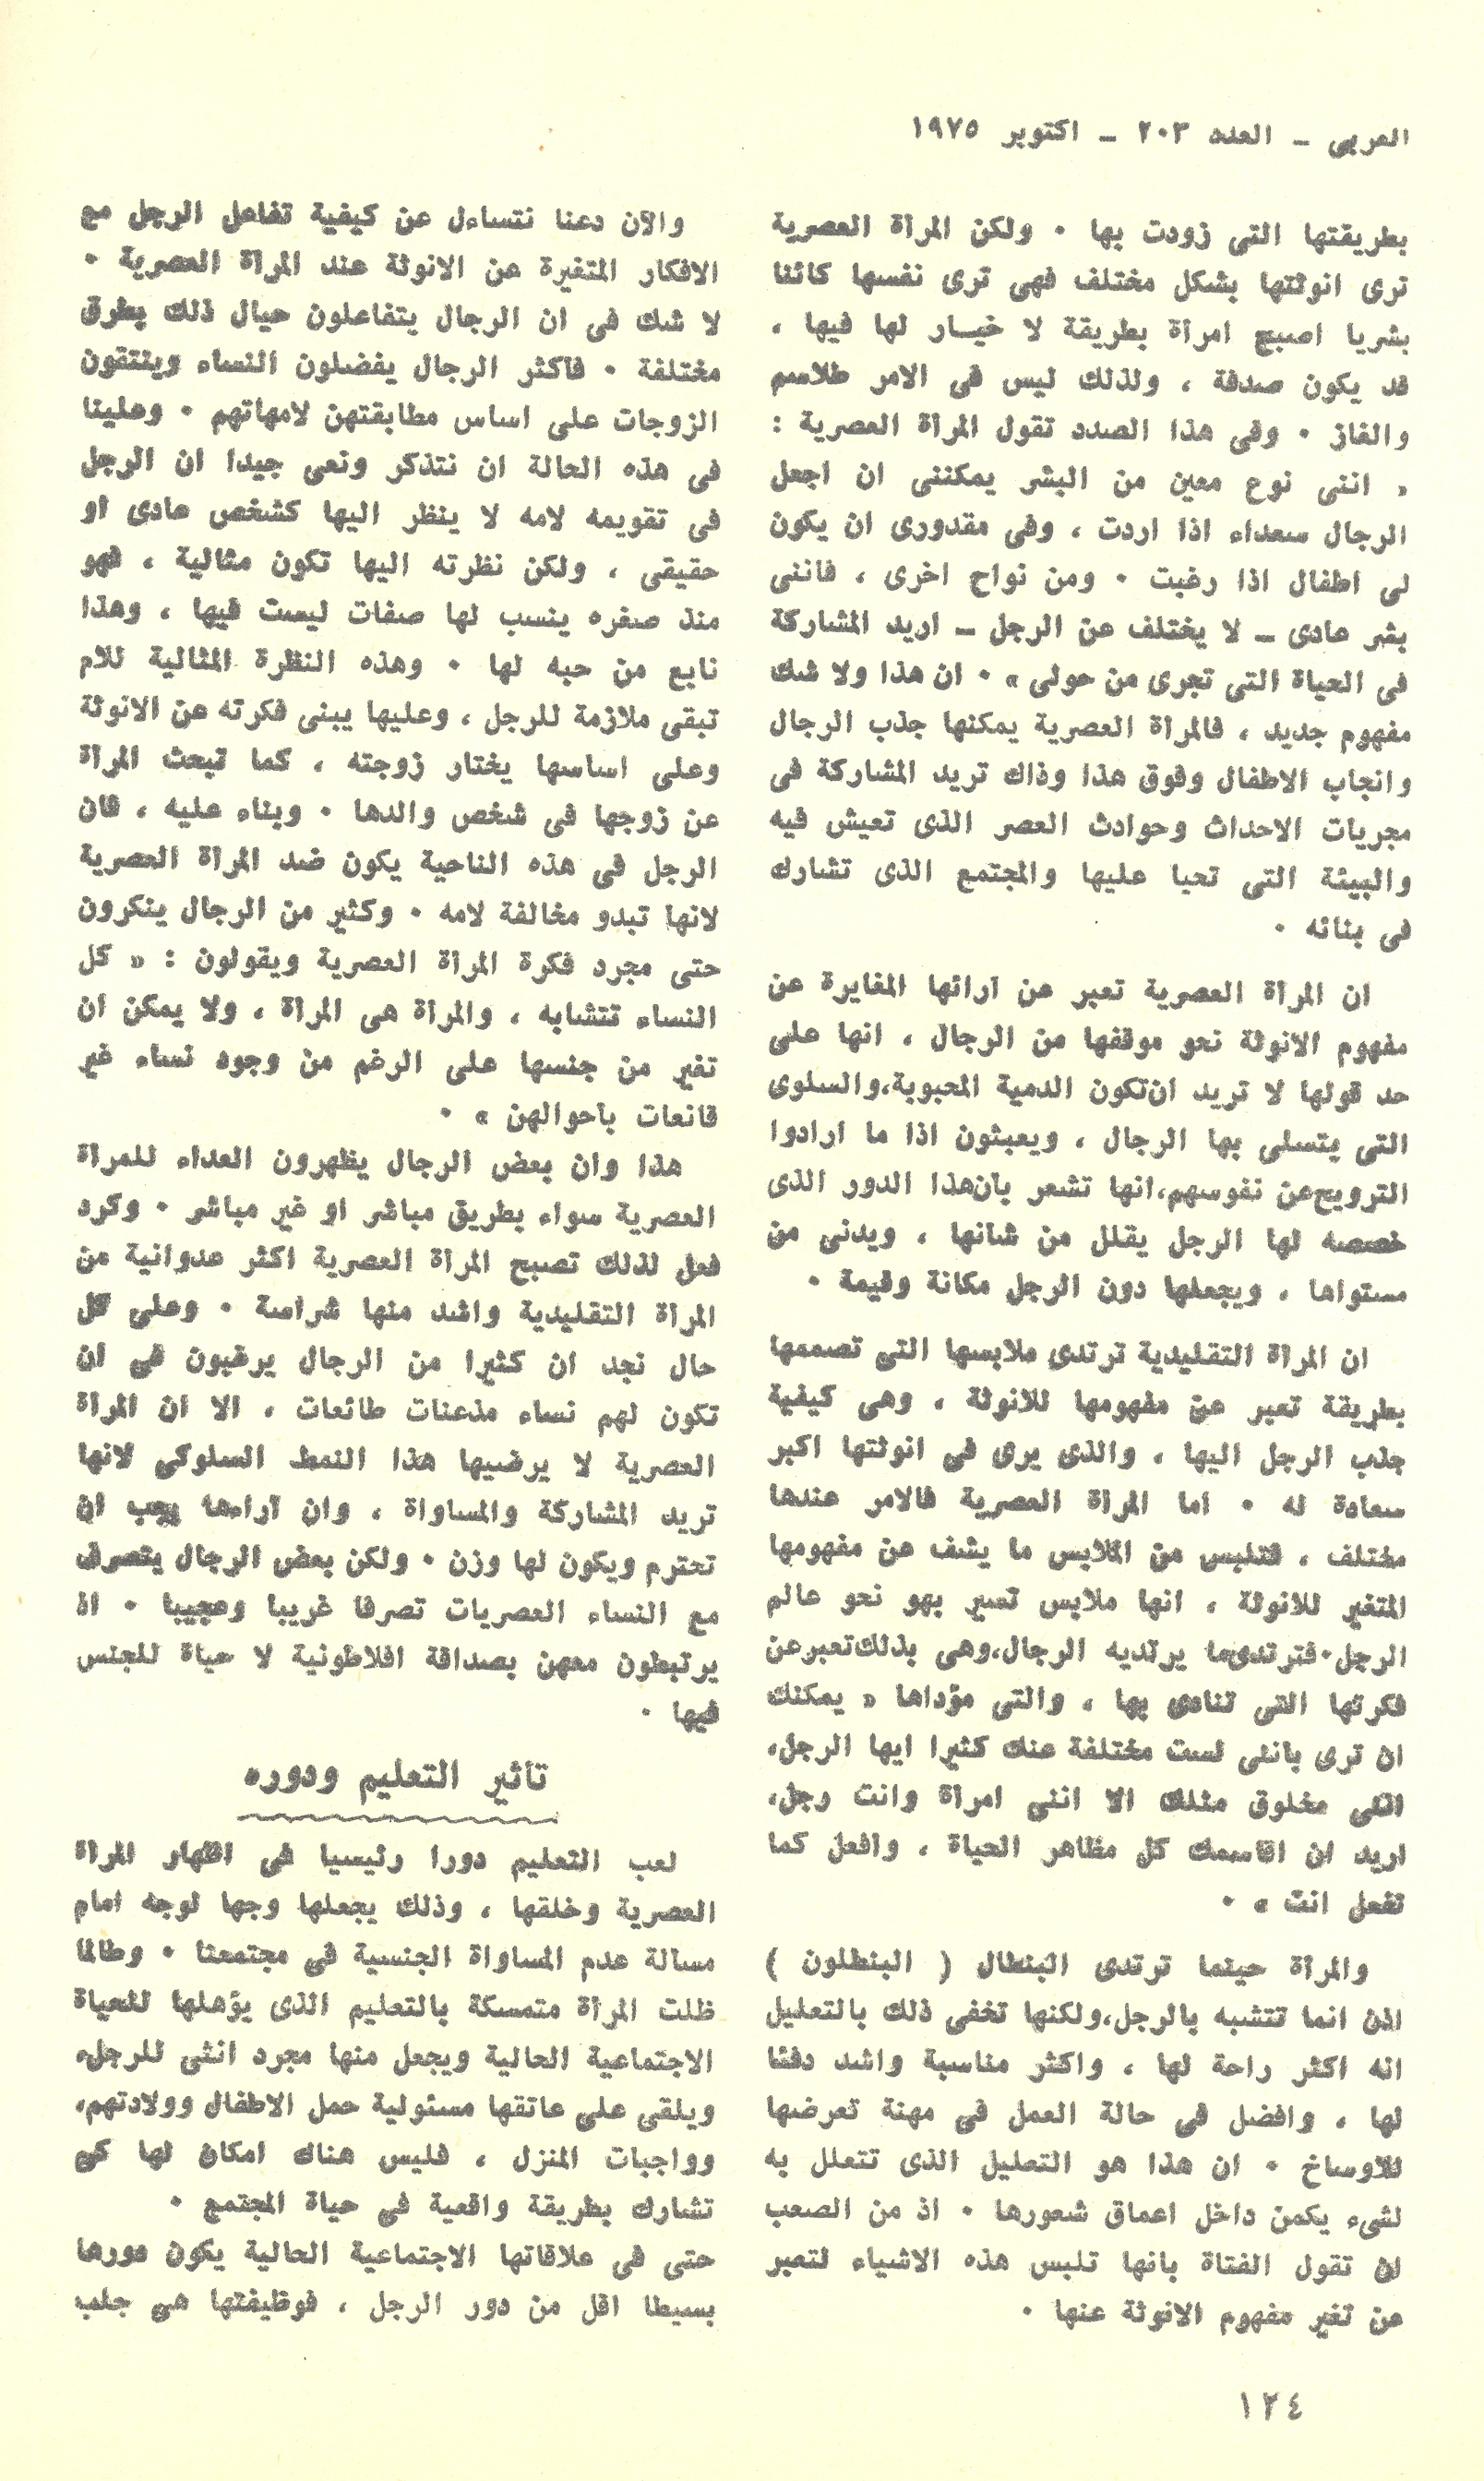 العربى ـ العدد ٢٠٣ ـ اكتوبر ١٩٧٥
بطريقتها التى زودت بها ٠ ولكن المرأة العصرية
ترى انوثتها بشكل مختلف فهى ترى نفسها كائنا
بشريا اصبح امرأة بطريقة لا خيـار لها فيها ،
قد يكون صدفة ، ولذلك ليس فى الامر طلاسم
والغاز ٠ وفى هذا الصدد تقول المرأة العصرية :
« اننى نوع معين من البشر يمكننى ان اجعل
الرجال سعداء اذا اردت ، وفى مقدورى ان يكون
لى اطفال اذا رغبت ٠ ومن نواح اخرى ، فاننى
بشر عادى ـ لا يختلف عن الرجل ـ اريد المشاركة
فى الحياة التى تجرى من حولى » ٠ ان هذا ولا شك
مفهوم جديد ، فالمرأة العصرية يمكنها جذب الرجال
وانجاب الاطفال وفوق هذا وذاك تريد المشاركة فى
مجريات الاحداث وحوادث العصر الذى تعيش فيه
والبيئة التى تحيا عليها والمجتمع الذى تشارك
فى بنائه ٠
ان المرأة العصرية تعبر عن آرائها المغايرة عن
مفهوم الانوثة نحو موقفها من الرجال ، انها على
حد قولها لا تريد ان تكون الدمية المحبوبة، والسلوى
التى يتسلى بها الرجال ، ويعبثون اذا ما ارادوا
الترويح عن نفوسهم، انها تشعر بأن هذا الدور الذى
خصصه لها الرجل يقلل من شأنها ، ويدنى من
مستواها ، ويجعلها دون الرجل مكانة وقيمة ٠
ان المرأة التقليدية ترتدى ملابسها التى تصممها
بطريقة تعبر عن مفهومها للانوثة ، وهى كيفية
جذب الرجل اليها ، والذى يرى فى انوثتها اكبر
سعادة له ٠ اما المرأة العصرية فالامر عندها
مختلف ، فتلبس من الملابس ما يشف عن مفهومها
المتغير للانوثة ، انها ملابس تسير بهو نحو عالم
الرجل٠ فترتدى ما يرتديه الرجال، وهى بذلك تعبر عن
فكرتها التى تنادى بها ، والتى مؤداها « يمكنك
ان ترى بأننى لست مختلفة عنك كثيرا ايها الرجل،
اننى مخلوق مثلك الا اننى امرأة وانت رجل،
اريد ان اقاسمك كل مظاهر الحياة ، وافعل كما
تفعل انت » ٠
والمرأة حينما ترتدى البنطال ( البنطلون )
اذن انما تتشبه بالرجل، ولكنها تخفى ذلك بالتعليل
انه اكثر راحة لها ، واكثر مناسبة واشد دفئا
لها ، وافضل فى حالة العمل فى مهنة تعرضها
للاوساخ ٠ ان هذا هو التعليل الذى تتعلل به
لشىء يكمن داخل اعماق شعورها ٠ اذ من الصعب
ان تقول الفتاة بانها تلبس هذه الاشياء لتعبر
عن تغير مفهوم الانوثة عنها ٠
والآن دعنا نتساءل عن كيفية تفاعل الرجل مع
الافكار المتغيرة عن الانوثة عند المرأة العصرية ٠
لا شك فى ان الرجال يتفاعلون حيال ذلك بطرق
مختلفة ٠ فأكثر الرجال يفضلون النساء وينتقون
الزوجات على اساس مطابقتهن لامهاتهم ٠ وعلينا
فى هذه الحالة ان نتذكر ونعى جيدا ان الرجل
فى تقويمه لامه لا ينظر اليها كشخص عادى أو
حقيقى ، ولكن نظرته اليها تكون مثالية ، فهو
منذ صغره ينسب لها صفات ليست فيها ، وهذا
نابع من حبه لها ٠ وهذه النظرة المثالية للام
تبقى ملازمة للرجل ، وعليها يبنى فكرته عن الانوثة
وعلى اساسها يختار زوجته ، كما تبحث المرأة
عن زوجها فى شخص والدها ٠ وبناء عليه ، فان
الرجل فى هذه الناحية يكون ضد المرأة العصرية
لانها تبدو مخالفة لامه ٠ وكثير من الرجال ينكرون
حتى مجرد فكرة المرأة العصرية ويقولون : « كل
النساء تتشابه ، والمرأة هى المرأة ، ولا يمكن ان
تغير من جنسها على الرغم من وجود نساء غير
قانعات بأحوالهن » ٠
هذا وان بعض الرجال يظهرون العداء للمرأة
العصرية سواء بطريق مباشر او غير مباشر ٠ وكرد
فعل لذلك تصبح المرأة العصرية اكثر عدوانية من
المرأة التقليدية واشد منها شراسة ٠ وعلى كل
حال نجد ان كثيرا من الرجال يرغبون فى ان
تكون لهم نساء مذعنات طائعات ، الا ان المرأة
العصرية لا يرضيها هذا النمط السلوكى لانها
تريد المشاركة والمساواة ، وان آراءها يجب ان
تحترم ويكون لها وزن ٠ ولكن بعض الرجال يتصرف
مع النساء العصريات تصرفا غريبا وعجيبا ٠ اذ
يرتبطون معهن بصداقة افلاطونية لا حياة للجنس
فيها ٠
تأثير التعليم ودوره
لعب التعليم دورا رئيسيا فى اظهار المرأة
العصرية وخلقها ، وذلك يجعلها وجها لوجه امام
مسألة عدم المساواة الجنسية فى مجتمعنا ٠ وطالما
ظلت المرأة متمسكة بالتعليم الذى يؤهلها للحياة
الاجتماعية الحالية ويجعل منها مجرد انثى للرجل،
ويلقى على عاتقها مسئولية حمل الاطفال وولادتهم،
وواجبات المنزل ، فليس هناك امكان لها كى
تشارك بطريقة واقعية فى حياة المجتمع ٠
حتى فى علاقاتها الاجتماعية الحالية يكون دورها
بسيطا اقل من دور الرجل ، فوظيفتها هى جلب
١٢٤